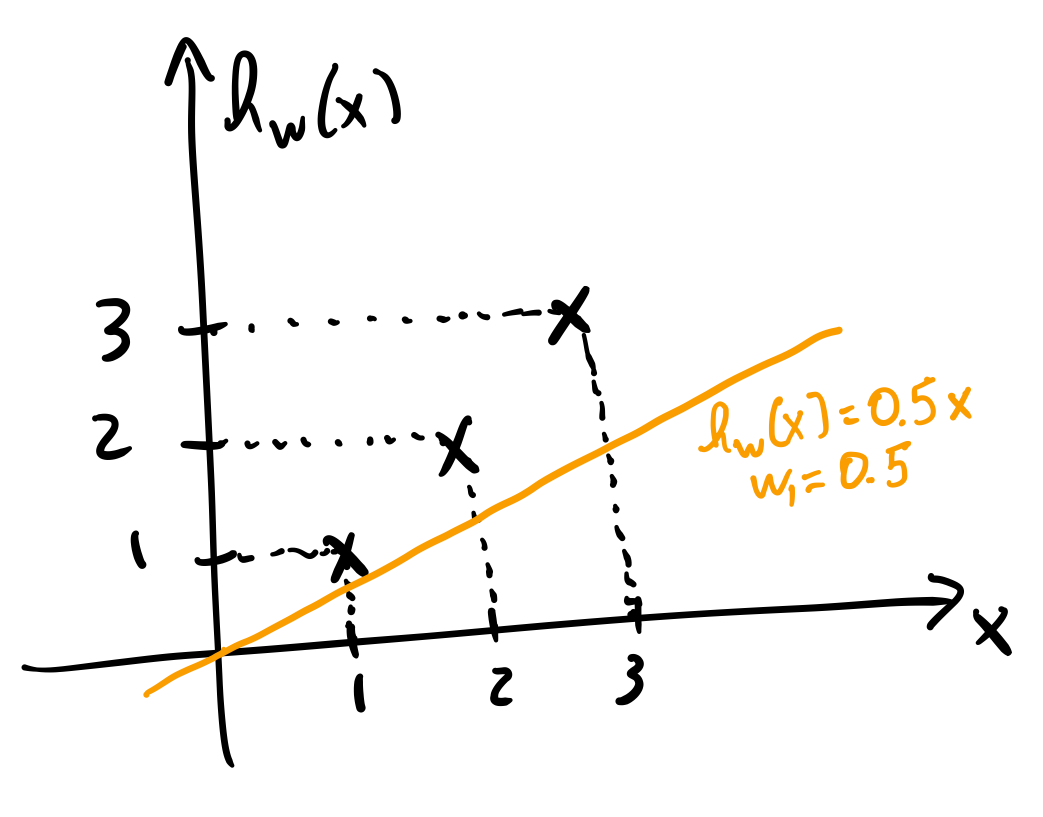 h_w(x)
3
2
1
h_w(x)=0.5x
w_1=0.5
x
1 2 3